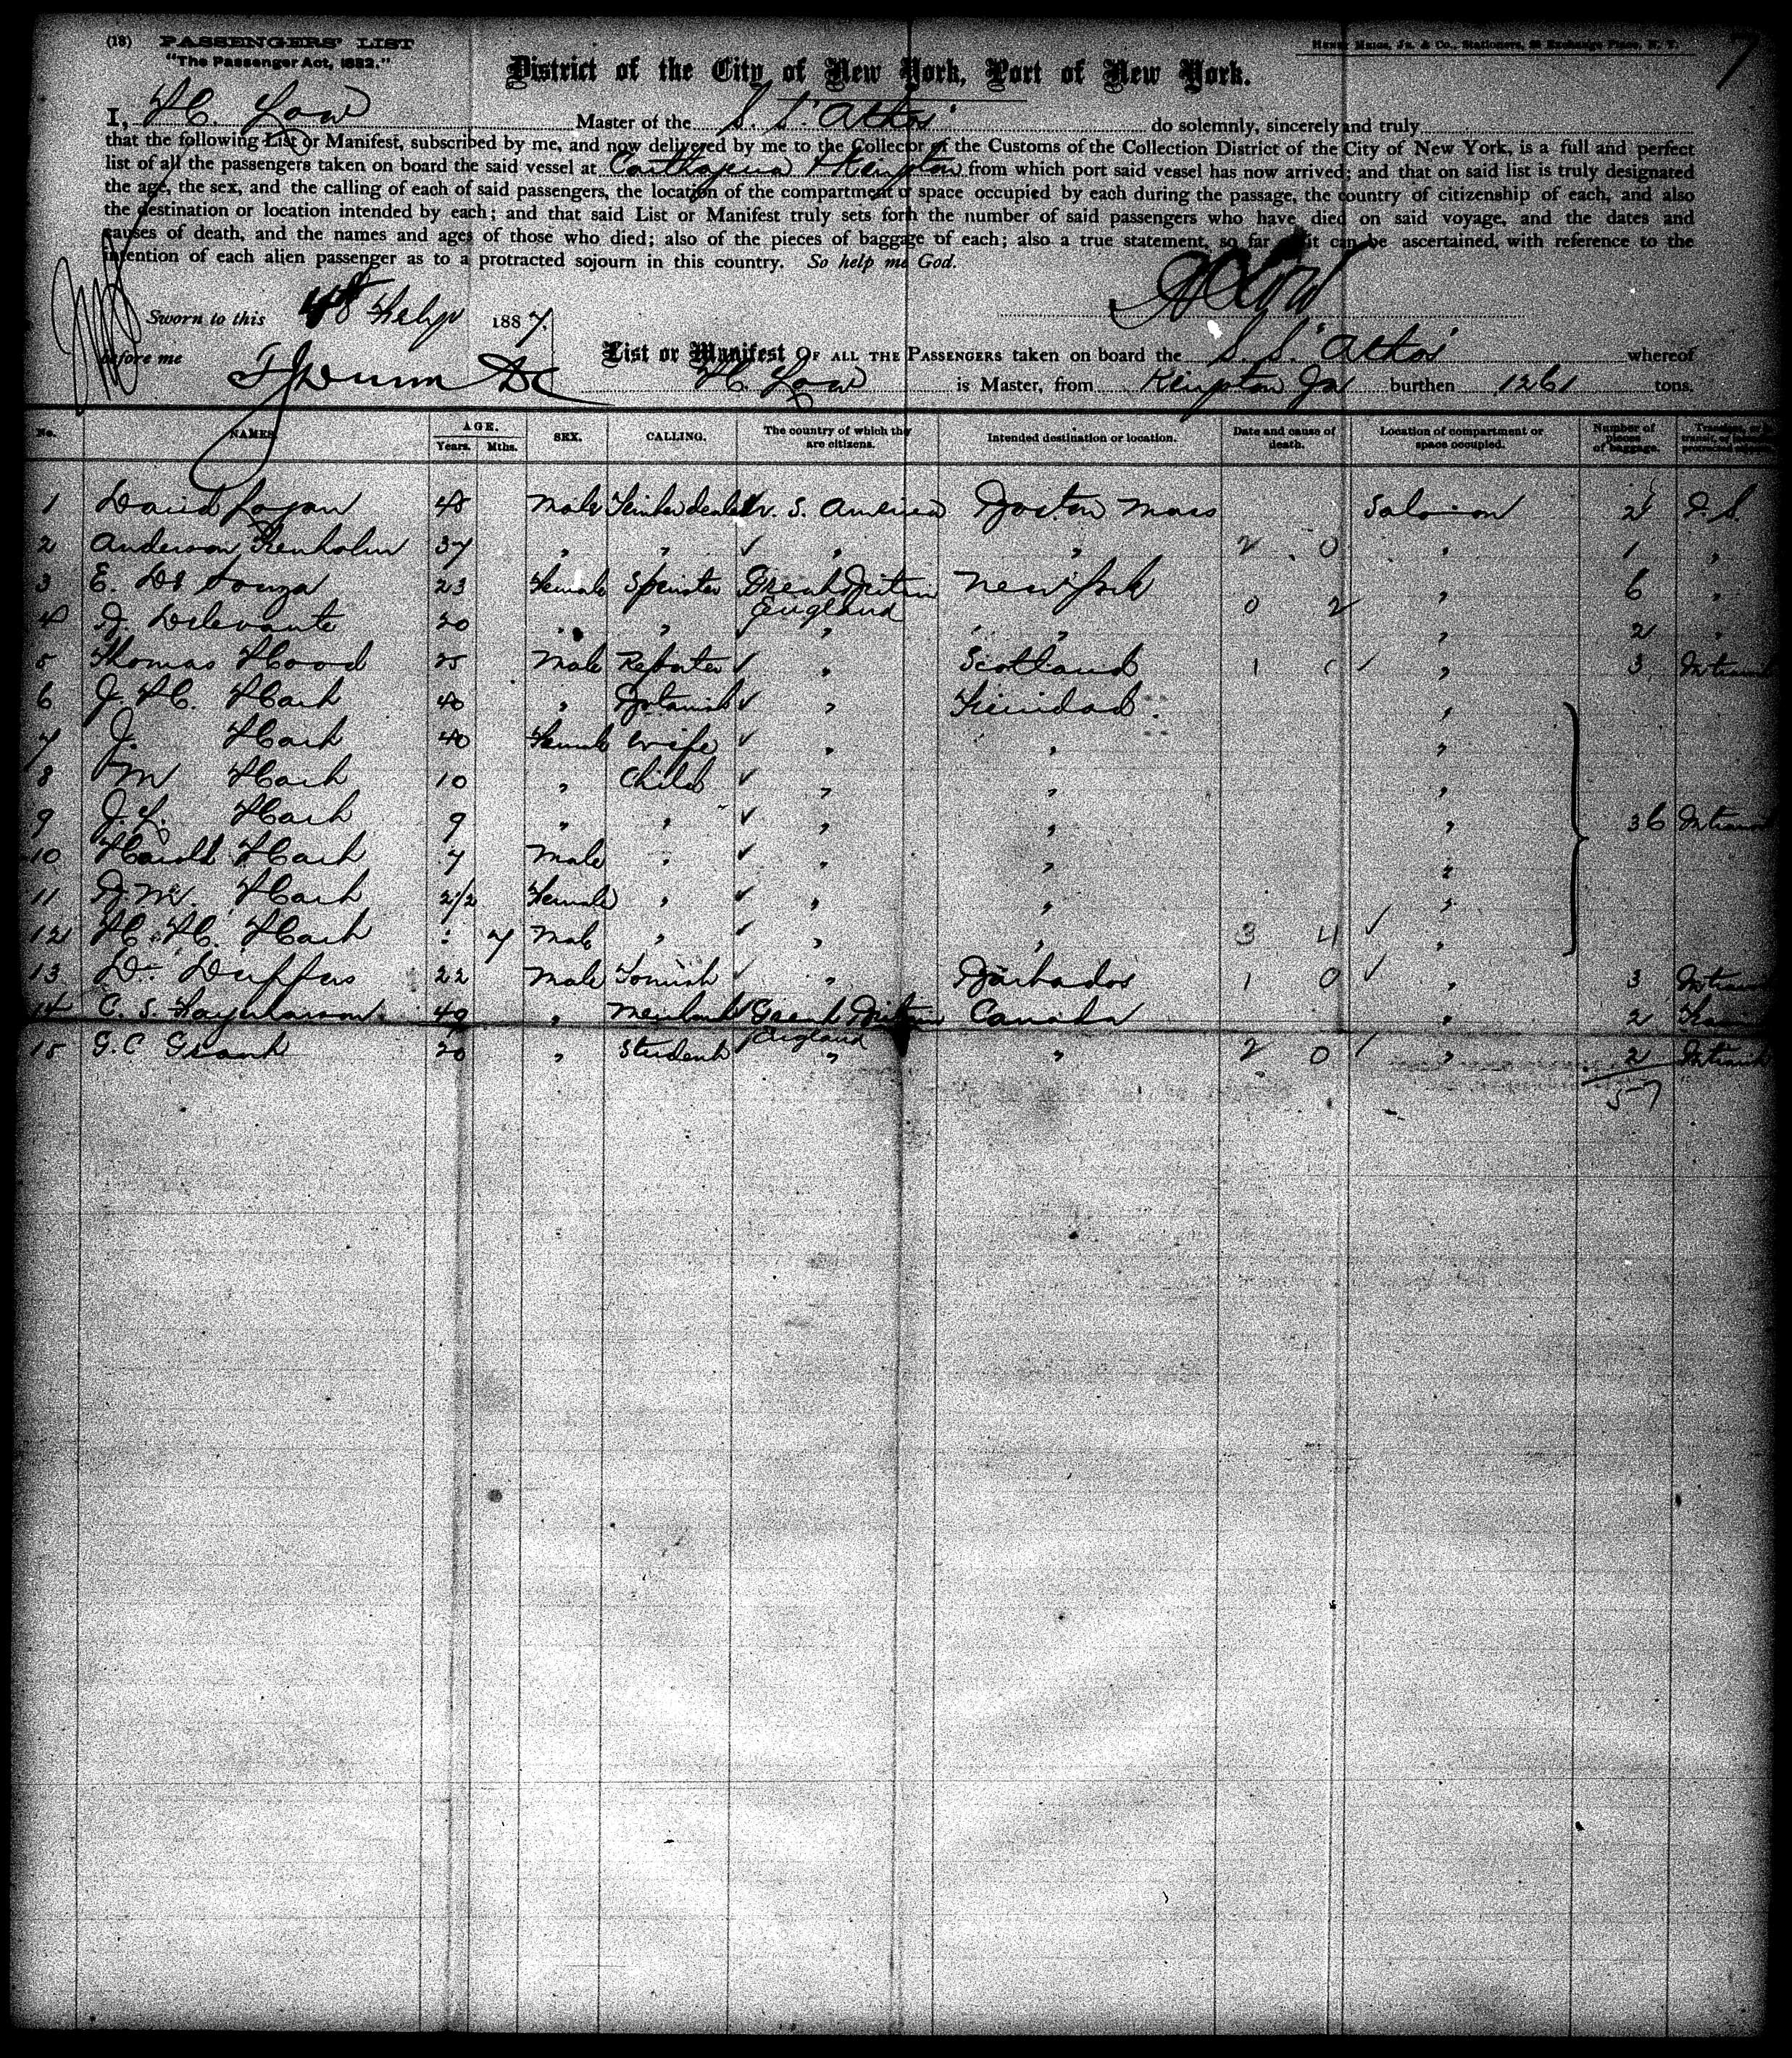 (18) PASSENGERS' LIST
"The Passenger Act, 1882."
7
District of the City of New York, Port of New York.
I, H. Low Master of the S. S. "Athos" do solemnly, sincerely and truly
that the following List or Manifest, subscribed by me, and now delivered by me to the Collector of the Customs of the Collection District of the City of New York, is a full and perfect
list of all the passengers taken on board the said vessel at Carthagena & Kingston from which port said vessel has now arrived; and that on said list is truly designated
the age, the sex, and the calling of each of said passengers, the location of the compartment or space occupied by each during the passage, the country of citizenship of each, and also
the destination or location intended by each; and that said List or Manifest truly sets forth the number of said passengers who have died on said voyage, and the dates and
causes of death, and the names and ages of those who died; also of the pieces of baggage of each; also a true statement, so far as it can be ascertained, with reference to the
intention of each alien passenger as to a protracted sojourn in this country. So help me God.
H Low
Sworn to this Feby 1887.
before me
List or Manifest OF ALL THE PASSENGERS taken on board the S. S. "Athos" whereof
H. Low is Master, from Kingston Ja burthen 1261 tons.
No. NAMES. AGE. Years. Mths. SEX. CALLING. The country of which they are citizens. Intended destination or location. Date and cause of death. Location of compartment or space occupied. Number of pieces of baggage.
1 David Logan 48 Male Timber dealer U. S. America Boston Mass Saloon 2 U. S.
2 Anderson Trenholm 37 " " " " 2 . 0 " 1 "
3 E. De Souza 23 Female Spinster Great Britain England New York " 6 "
4 D. Delevante 20 " " " " 0 2 " 2 "
5 Thomas Hood 25 Male Reporter " Scotland 1 " 3 In transit
6 J. H. Hart 40 " Botanist " Trinidad "
7 J. Hart 40 Female Wife " " "
8 M Hart 10 " Child " " "
9 J. L. Hart 9 " " " " " 36 In transit
10 Harold Hart 7 Male " " " "
11 D. M. Hart 2 1/2 Female " " " "
12 H. H. Hart : 7 Male " " " 3 4 "
13 D. Duffus 22 Male Tourist " Barbados 1 0 " 3 In transit
14 C. S. 40 " Merchant Great Britain England Canada " 2
15 G. C Grant 20 " Student " " 2 0 " 2 In transit
57